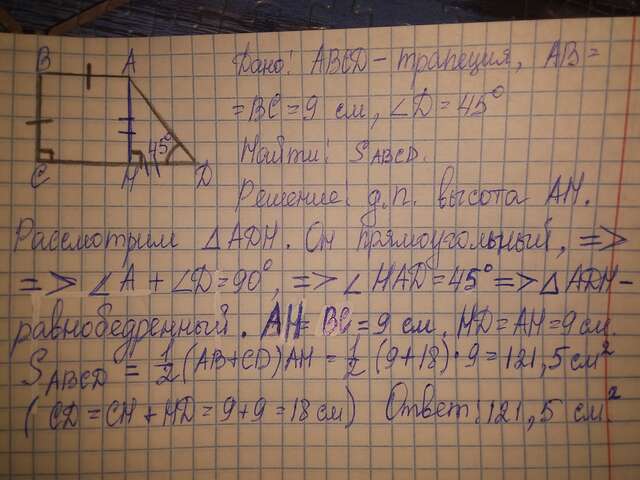 B A
45°
C H D
Дано: ABCD - трапеция, AB =
= BC = 9 см, ∠D = 45°
Найти: S_ABCD.
Решение: д.п. высота AH.
Рассмотрим △ADH. Он прямоугольный, =>
=> ∠A + ∠D = 90°, => ∠HAD = 45° => △ADH -
равнобедренный. AH = BC = 9 см. HD = AH = 9 см.
S_ABCD = 1/2 (AB + CD) AH = 1/2 (9 + 18) · 9 = 121,5 см²
( CD = CH + HD = 9 + 9 = 18 см) Ответ: 121,5 см²